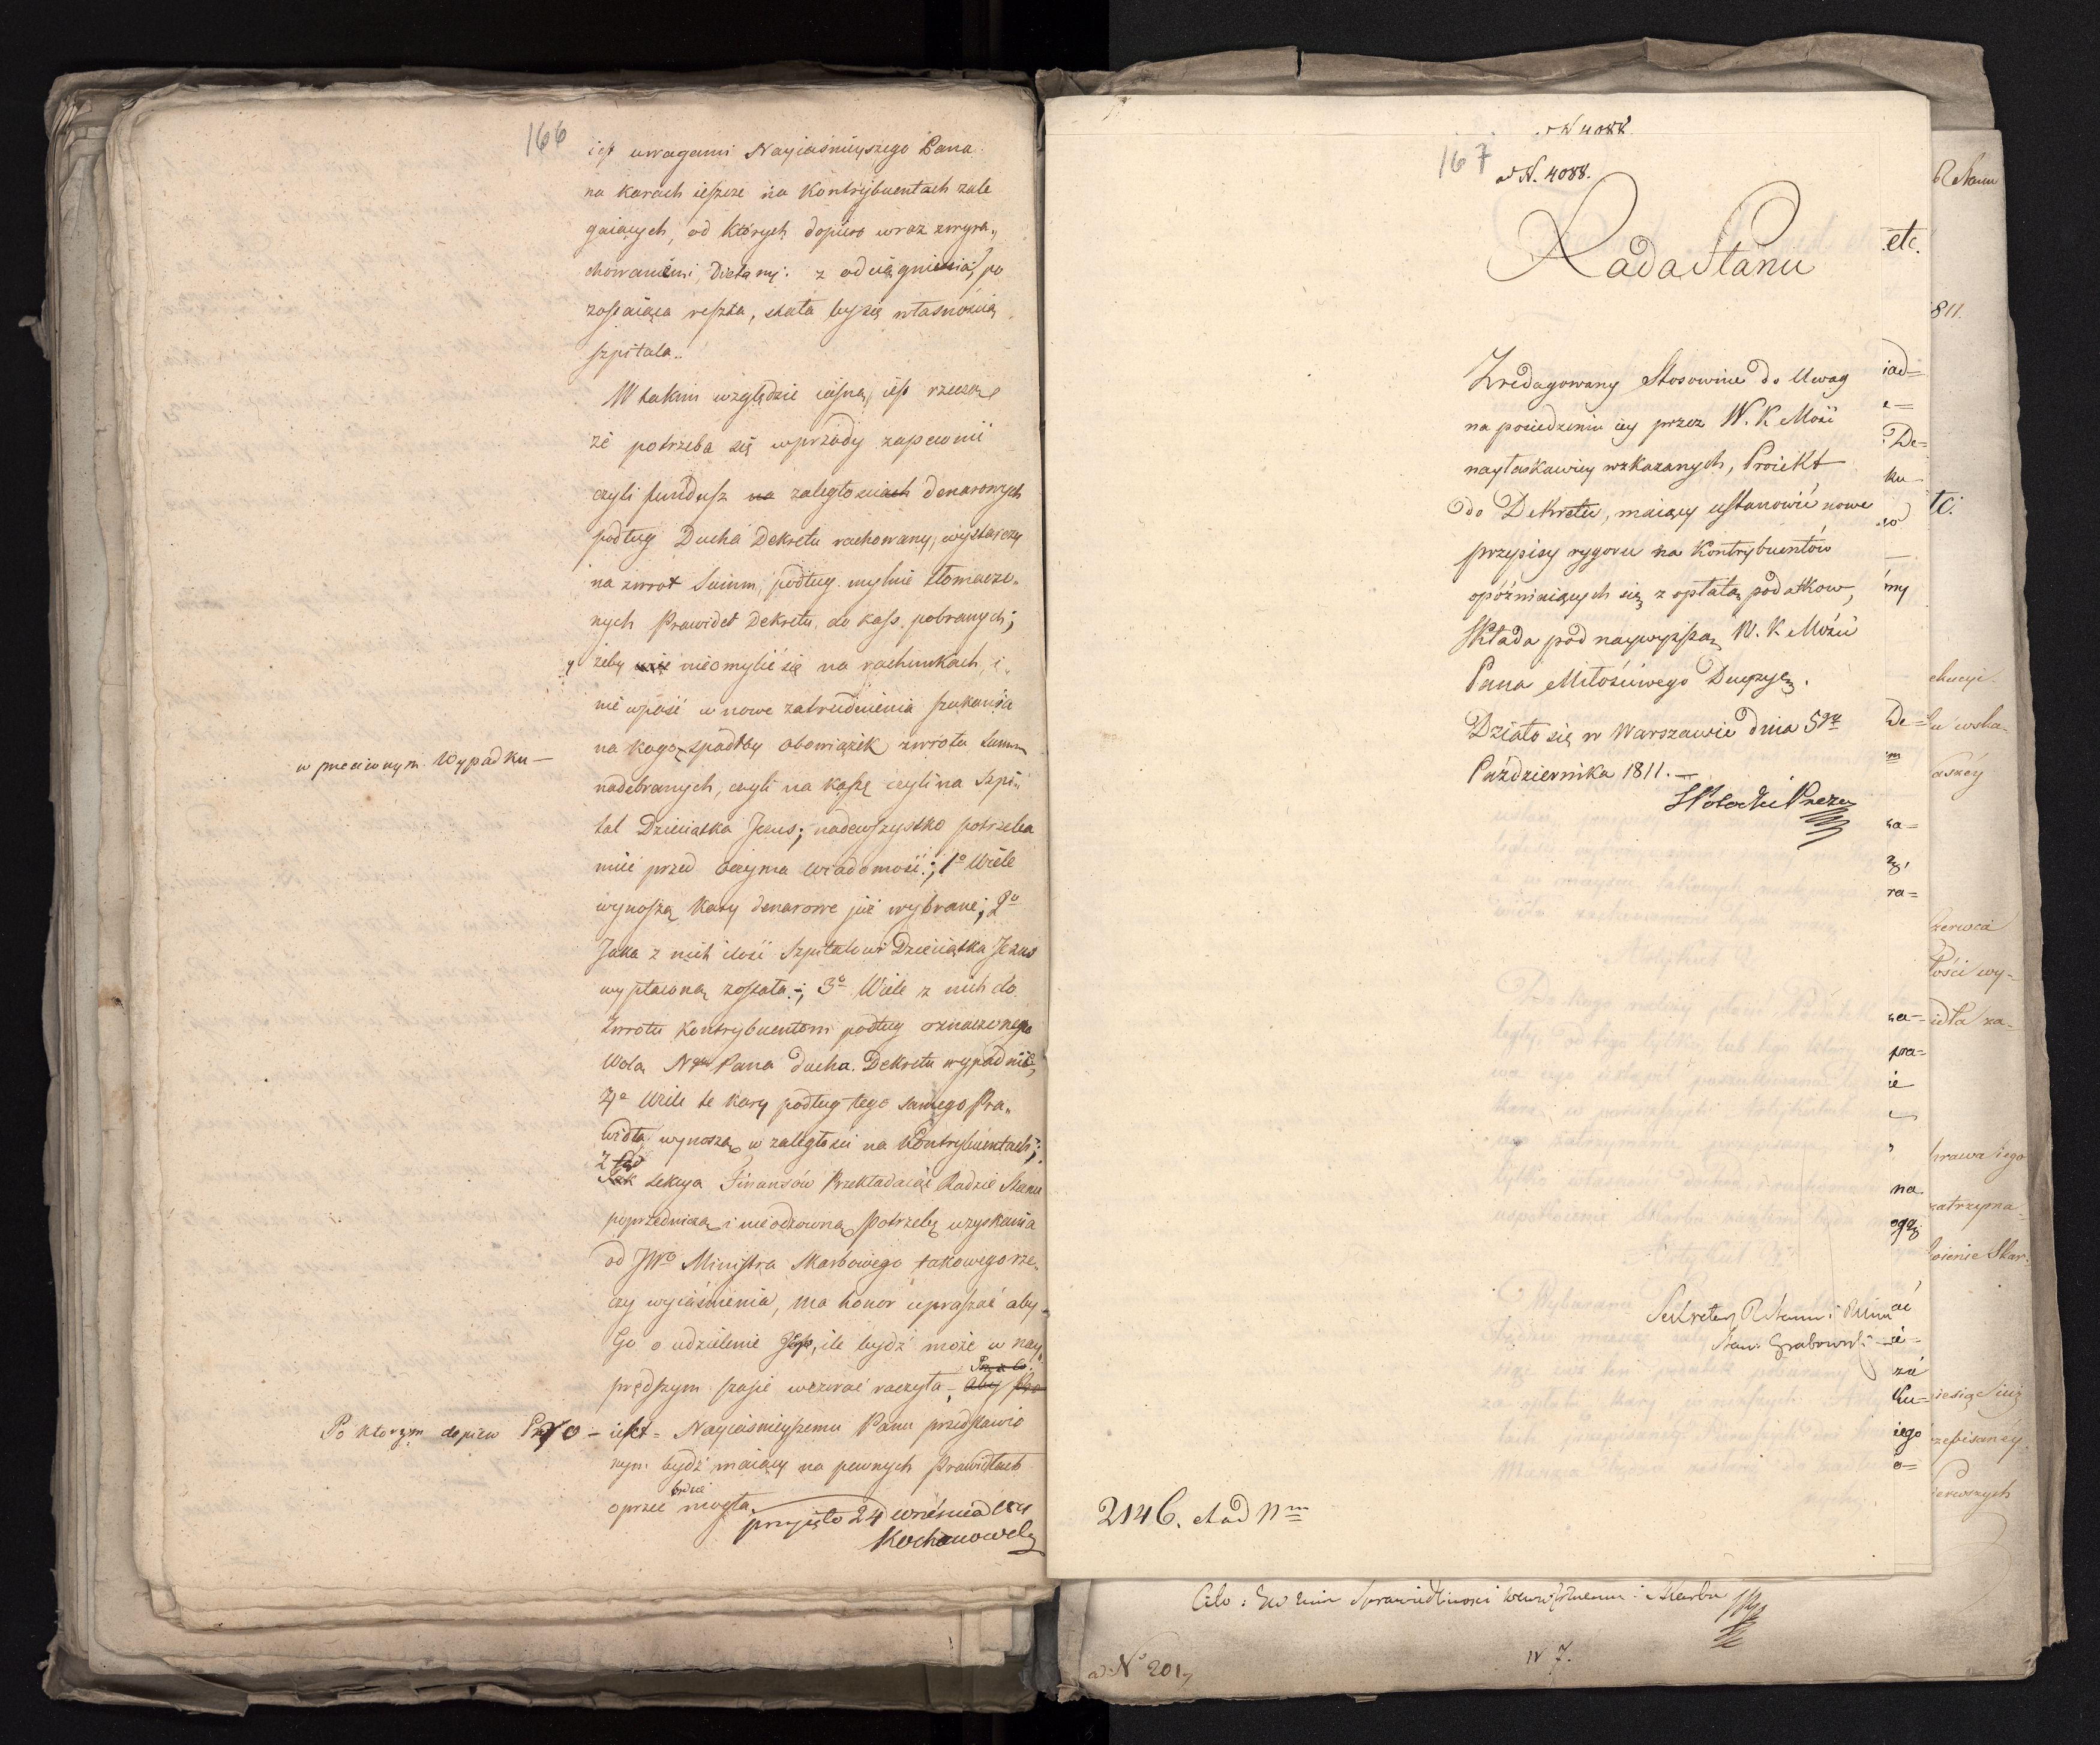 166
iest uwagami Nayiaśnieyszego Pana
na karach ieszcze na Kontrybuentach zale
gaiących, od których dopiero wraz z wyra„
chowaniem Dietary: z odciągnienia, po
zostaiąca reszta, stała by się własnością
szpitala..
W takim względzie iasną iest rzeczą
że potrzeba się wprzódy zapewnić
czyli fundusz na zaległościach denarowych
podług Ducha Dekretu rachowany, wystarczy
na zwrot Summ, podług mylnie tłomaczo„
nych Prawideł Dekretu, do kass pobranych;
y żeby nie omylić się na rachunkach, i
nie wpaść w nowe zatrudnienia szukania
w przeciwnym Wypadku —
na kogo spadłby obowiązek zwrotu Summ
nadebranych, czyli na kassę czyli na Szpi„
tal Dzieciątka Jezus; nadewszystko potrzeba
mieć przed oczyma wiadomość; 1o Wiele
wynoszą kary denarowe już wybrane; 2o
Jaka z nich ilość Szpitalowi Dzieciątka Jezus
wypłaconą została; 3o Wiele z nich do
Zwrotu Kontrybuentom podług oznaczonego
Wolą Ngo Pana ducha Dekretu wypadnie,
4o Wiele te kary podług tego samego Pra„
widła wynoszą w zaległości na Kontrybuentach;
Z tąd
Tak Sekcya Finansów Przekładaiąc Radzie Stanu
poprzedniczą i nieodzowną potrzebę uzyskania
od JWo Ministra Skarbowego takowego rze„
czy wyiaśnienia, ma honor upraszać aby
Go o udzielenie Jego, ile bydź może w nay
prędszym czasie wezwać raczyła, aby Pro
Po którym dopiero Pro – iekt = Nayiaśnieyszemu Panu przedstawio
nym bydź maiący na pewnych Prawidłach
oprzeć będzie mogła.
przyięto 24 września 1811
Kochanowski
ad N 4088
167
ad N. 4088.
Rada Stanu
Zredagowany Stosownie do Uwag
na posiedzeniu iey przez W. K Mość
nayłaskawiey wzkazanych, Proiekt
do Dekretu, maiący ustanowić nowe
przepisy rygoru na Kontrybuentów
opóźniaiących się z opłatą podatkow,
Składa pod naywyższą W. K Mości
Pana Miłościwego Decyzyę.
Działo się w Warszawie dnia 5go
Października 1811. —
S Potocki Prezes
Sekretarz R Stanu i R Min
Stan. Grabowski
2146. et ad Nm
Cito: Ew Min Sprawiedliwości Wewnętrznemu i Skarbu
N 7.
ad No 201
R Stanu
etc.
811.
iad=
De=
ku
tc:
ny
ekucyi.
De=
w wska=
ra=
zerwca
łości wy=
idła za=
pra=
ie
Prawa iego
na
zatrzyma=
oienie Skar=
ku=
iesiąc iuż
iego
rzepisaney.
Pierwszych